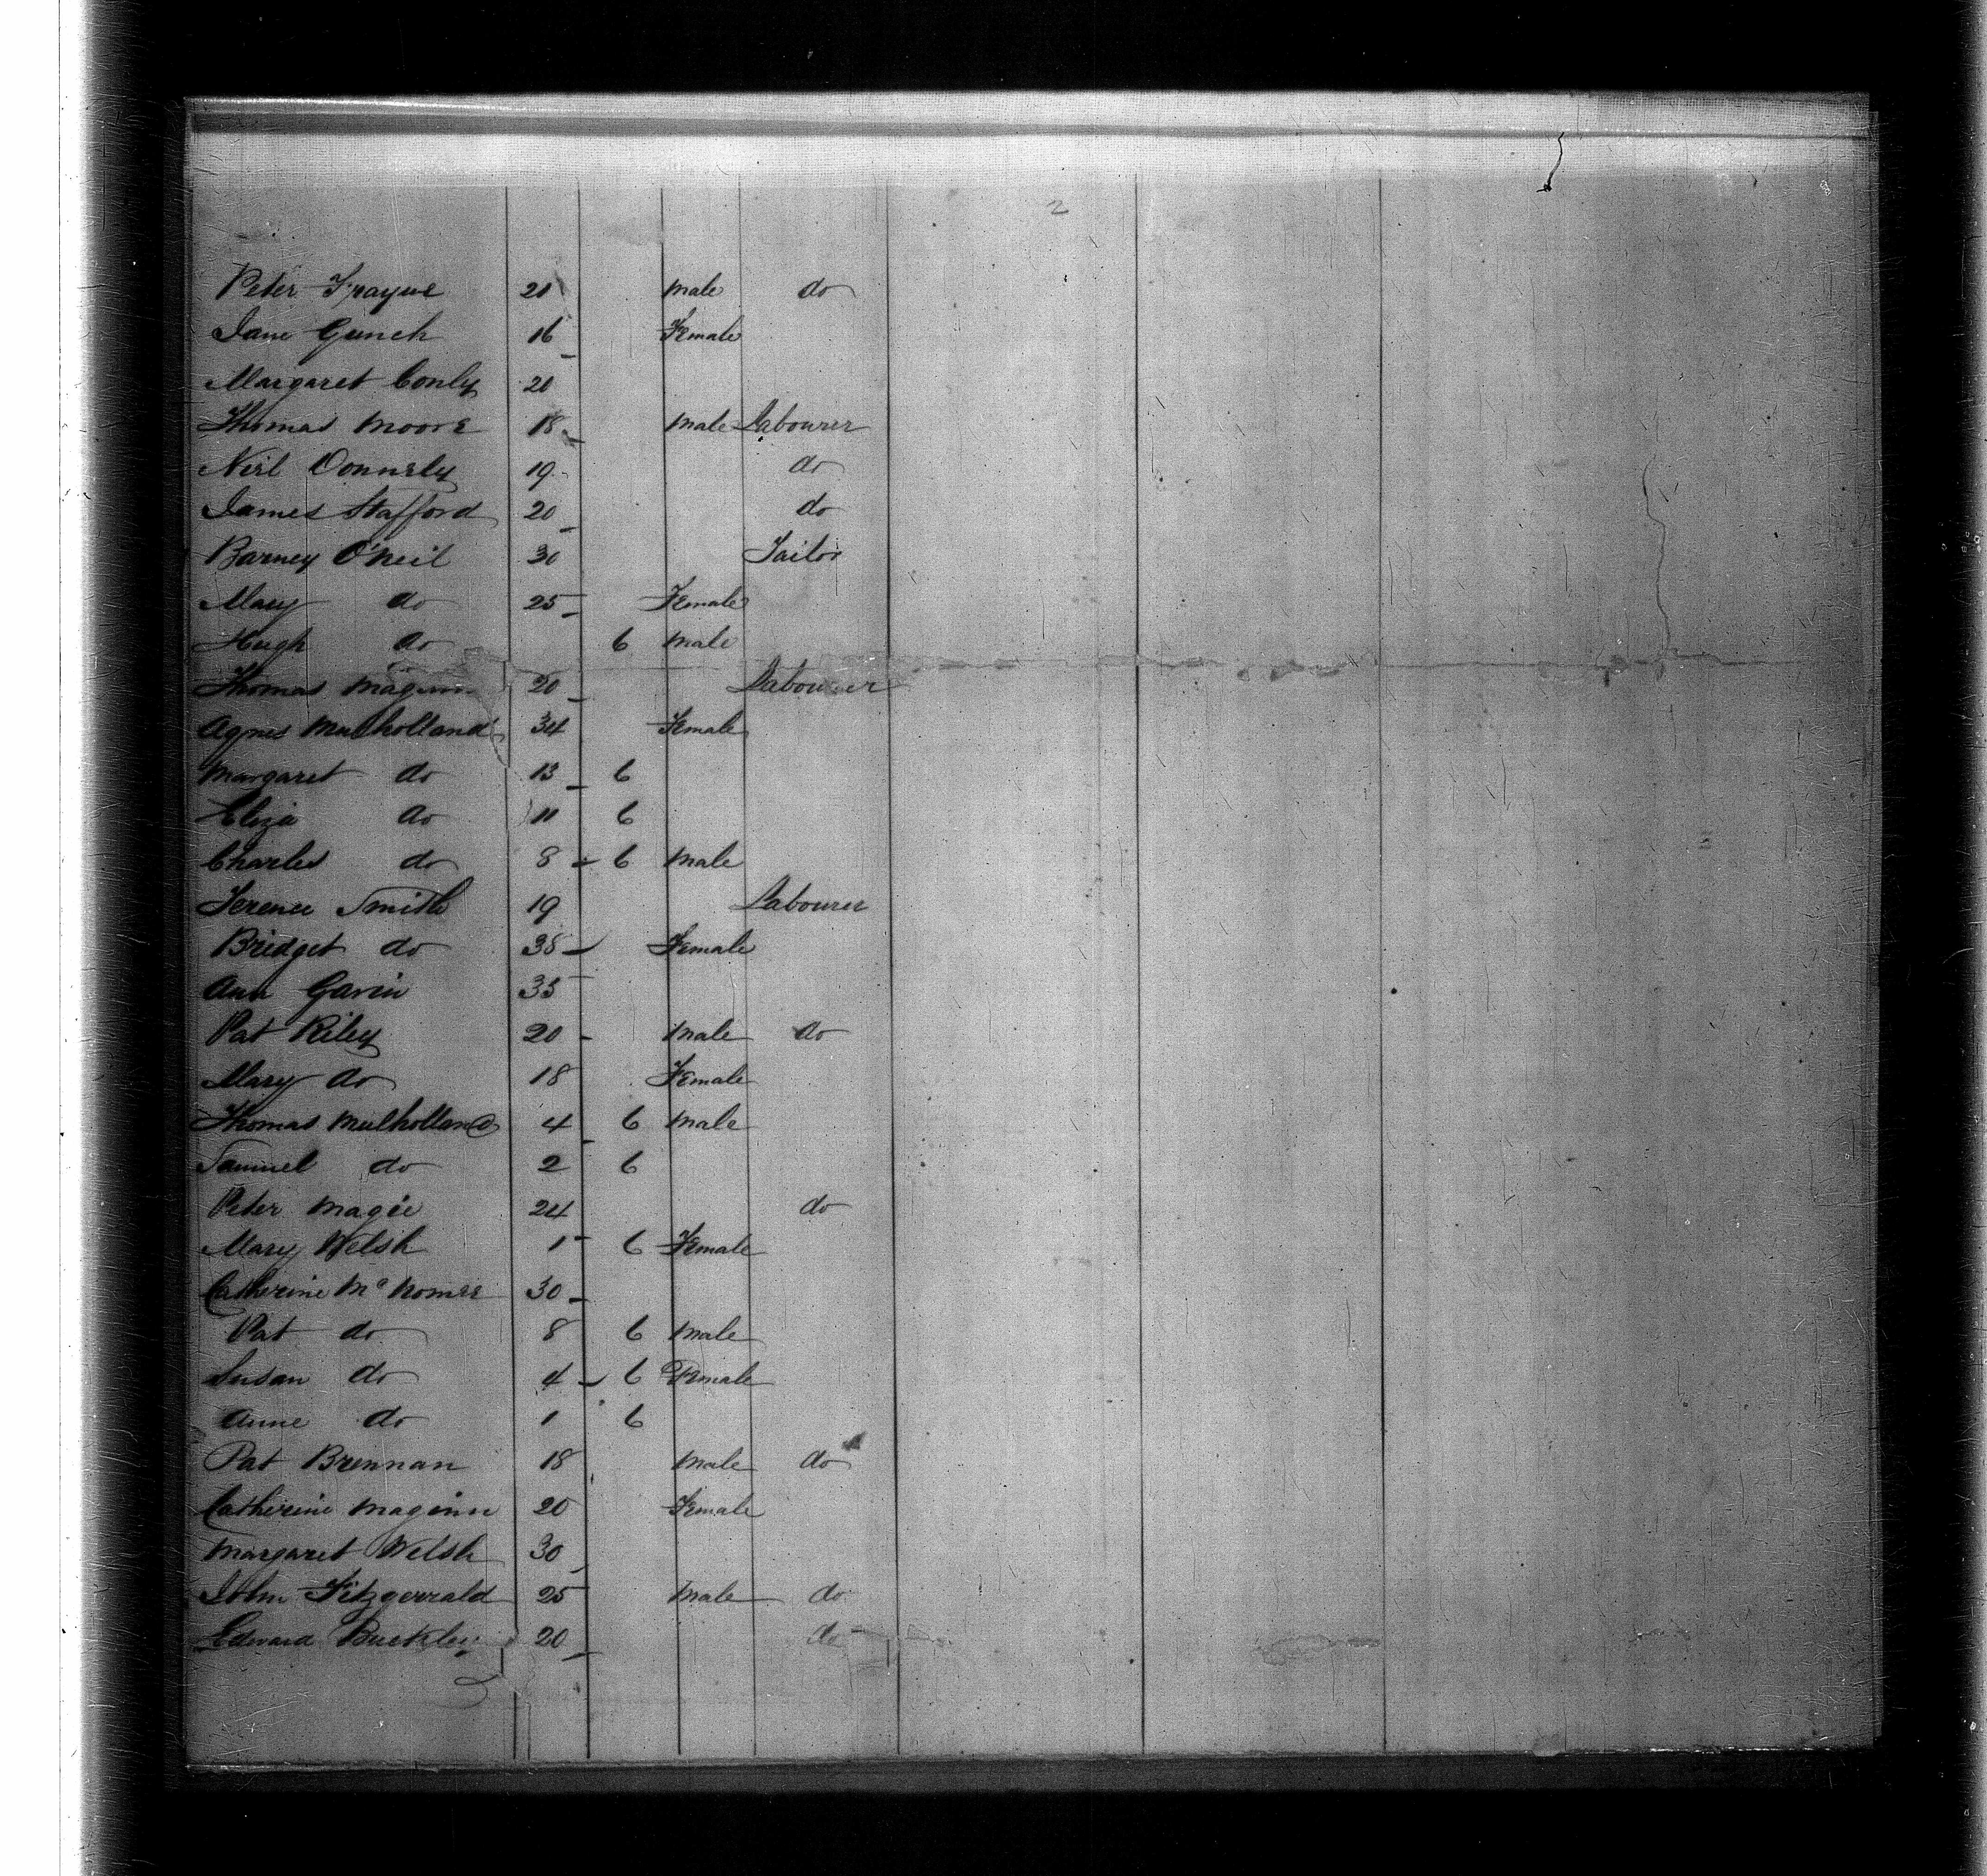 2
Peter Frayne 21 male do
Jane Gunch 16 Female
Margaret Conly 20
Thomas Moore 18 male Labourer
Neil Donnely 19 do
James Stafford 20 do
Barney O'Neil 30 Tailor
Mary do 25 Female
Hugh do 6 male
Thomas Maginn 20 Labourer
Agnes Mulholland 34 Female
Margaret do 13 6
Eliza do 11 6
Charles do 8 6 male
Terence Smith 19 Labourer
Bridget do 38 Female
Ann Gavin 35
Pat Riley 20 male do
Mary do 18 Female
Thomas Mulholland 4 6 male
Samuel do 2 6
Peter Magee 24 do
Mary Welsh 1 6 Female
Catherine Mc 30
Pat do 8 6 male
Susan do 4 6 Female
Anne do 1 6
Pat Brennan 18 male do
Catherine Maginn 20 Female
Margaret Welsh 30
John Fitzgerrald 25 male do
Edward Buckley 20 do